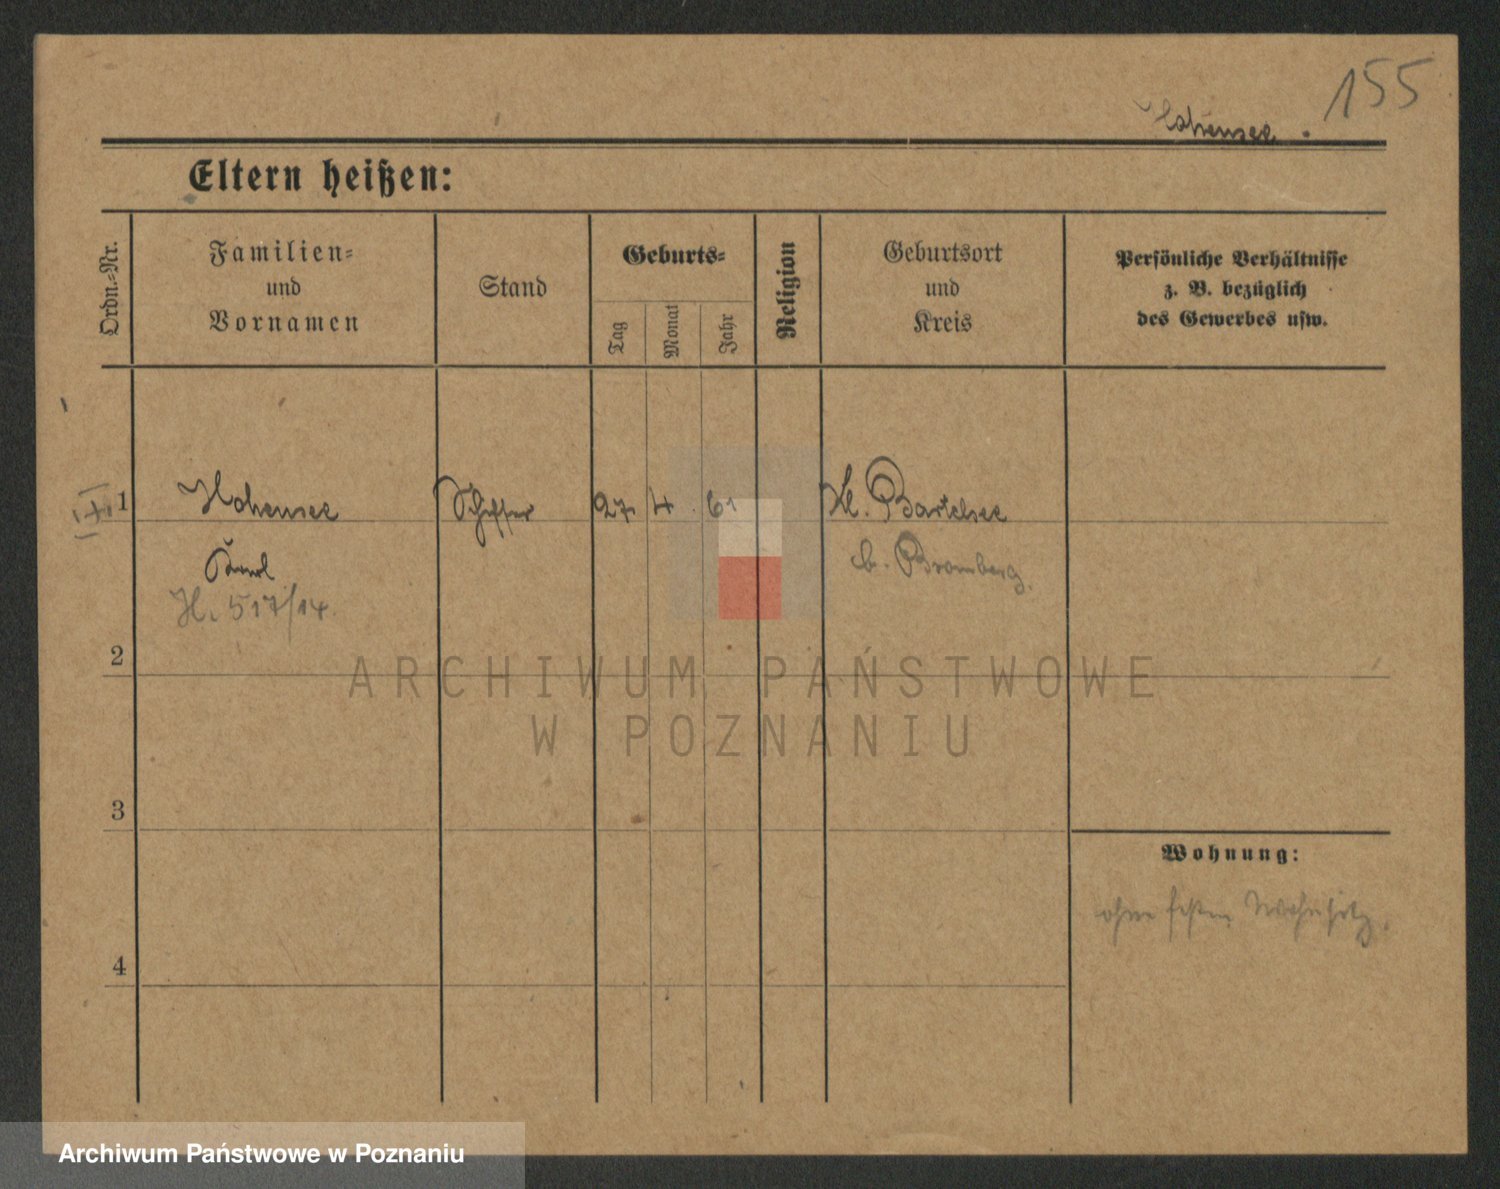 155
Hohensee.
Eltern heißen:
Ordn.-Nr.
Familien-
und
Vornamen
Stand
Geburts-
Tag
Monat
Jahr
Religion
Geburtsort
und
Kreis
Persönliche Verhältnisse
z. B. bezüglich
des Gewerbes usw.
1 Hohensee Schiffer 27. 4. 61 Kl. Bartelsee
Karl b. Bromberg.
H. 517/14.
2
ARCHIWUM PAŃSTWOWE
W POZNANIU
3
Wohnung:
ohne festen Wohnsitz.
4
Archiwum Państwowe w Poznaniu